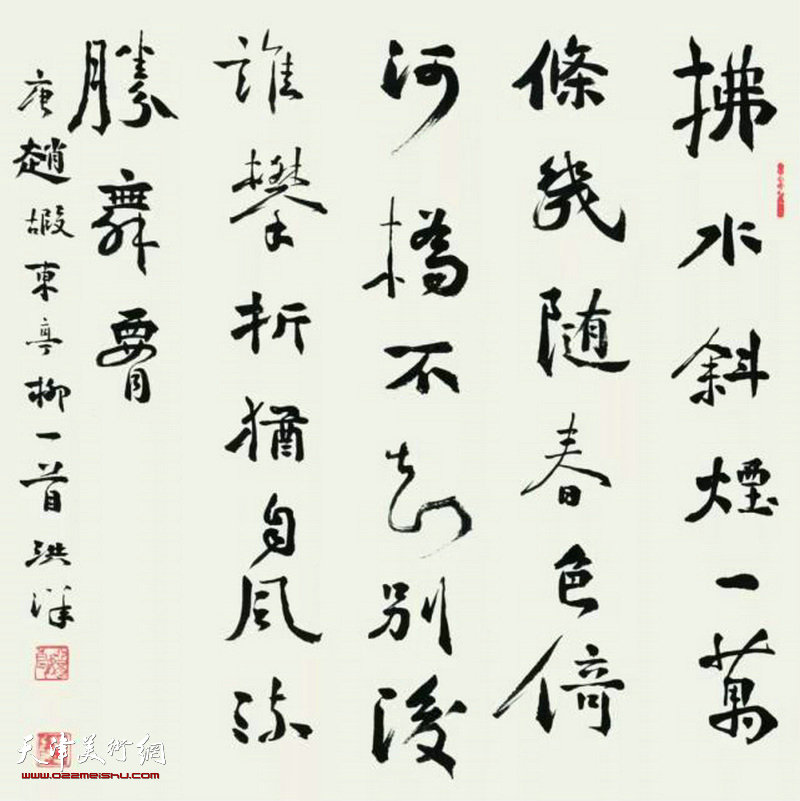 拂水斜煙一萬
條幾随春色倚
河橋不知別後
誰攀折猶自風流
勝舞腰
唐趙嘏東亭柳一首洪
天津美術網
www.022meishu.com